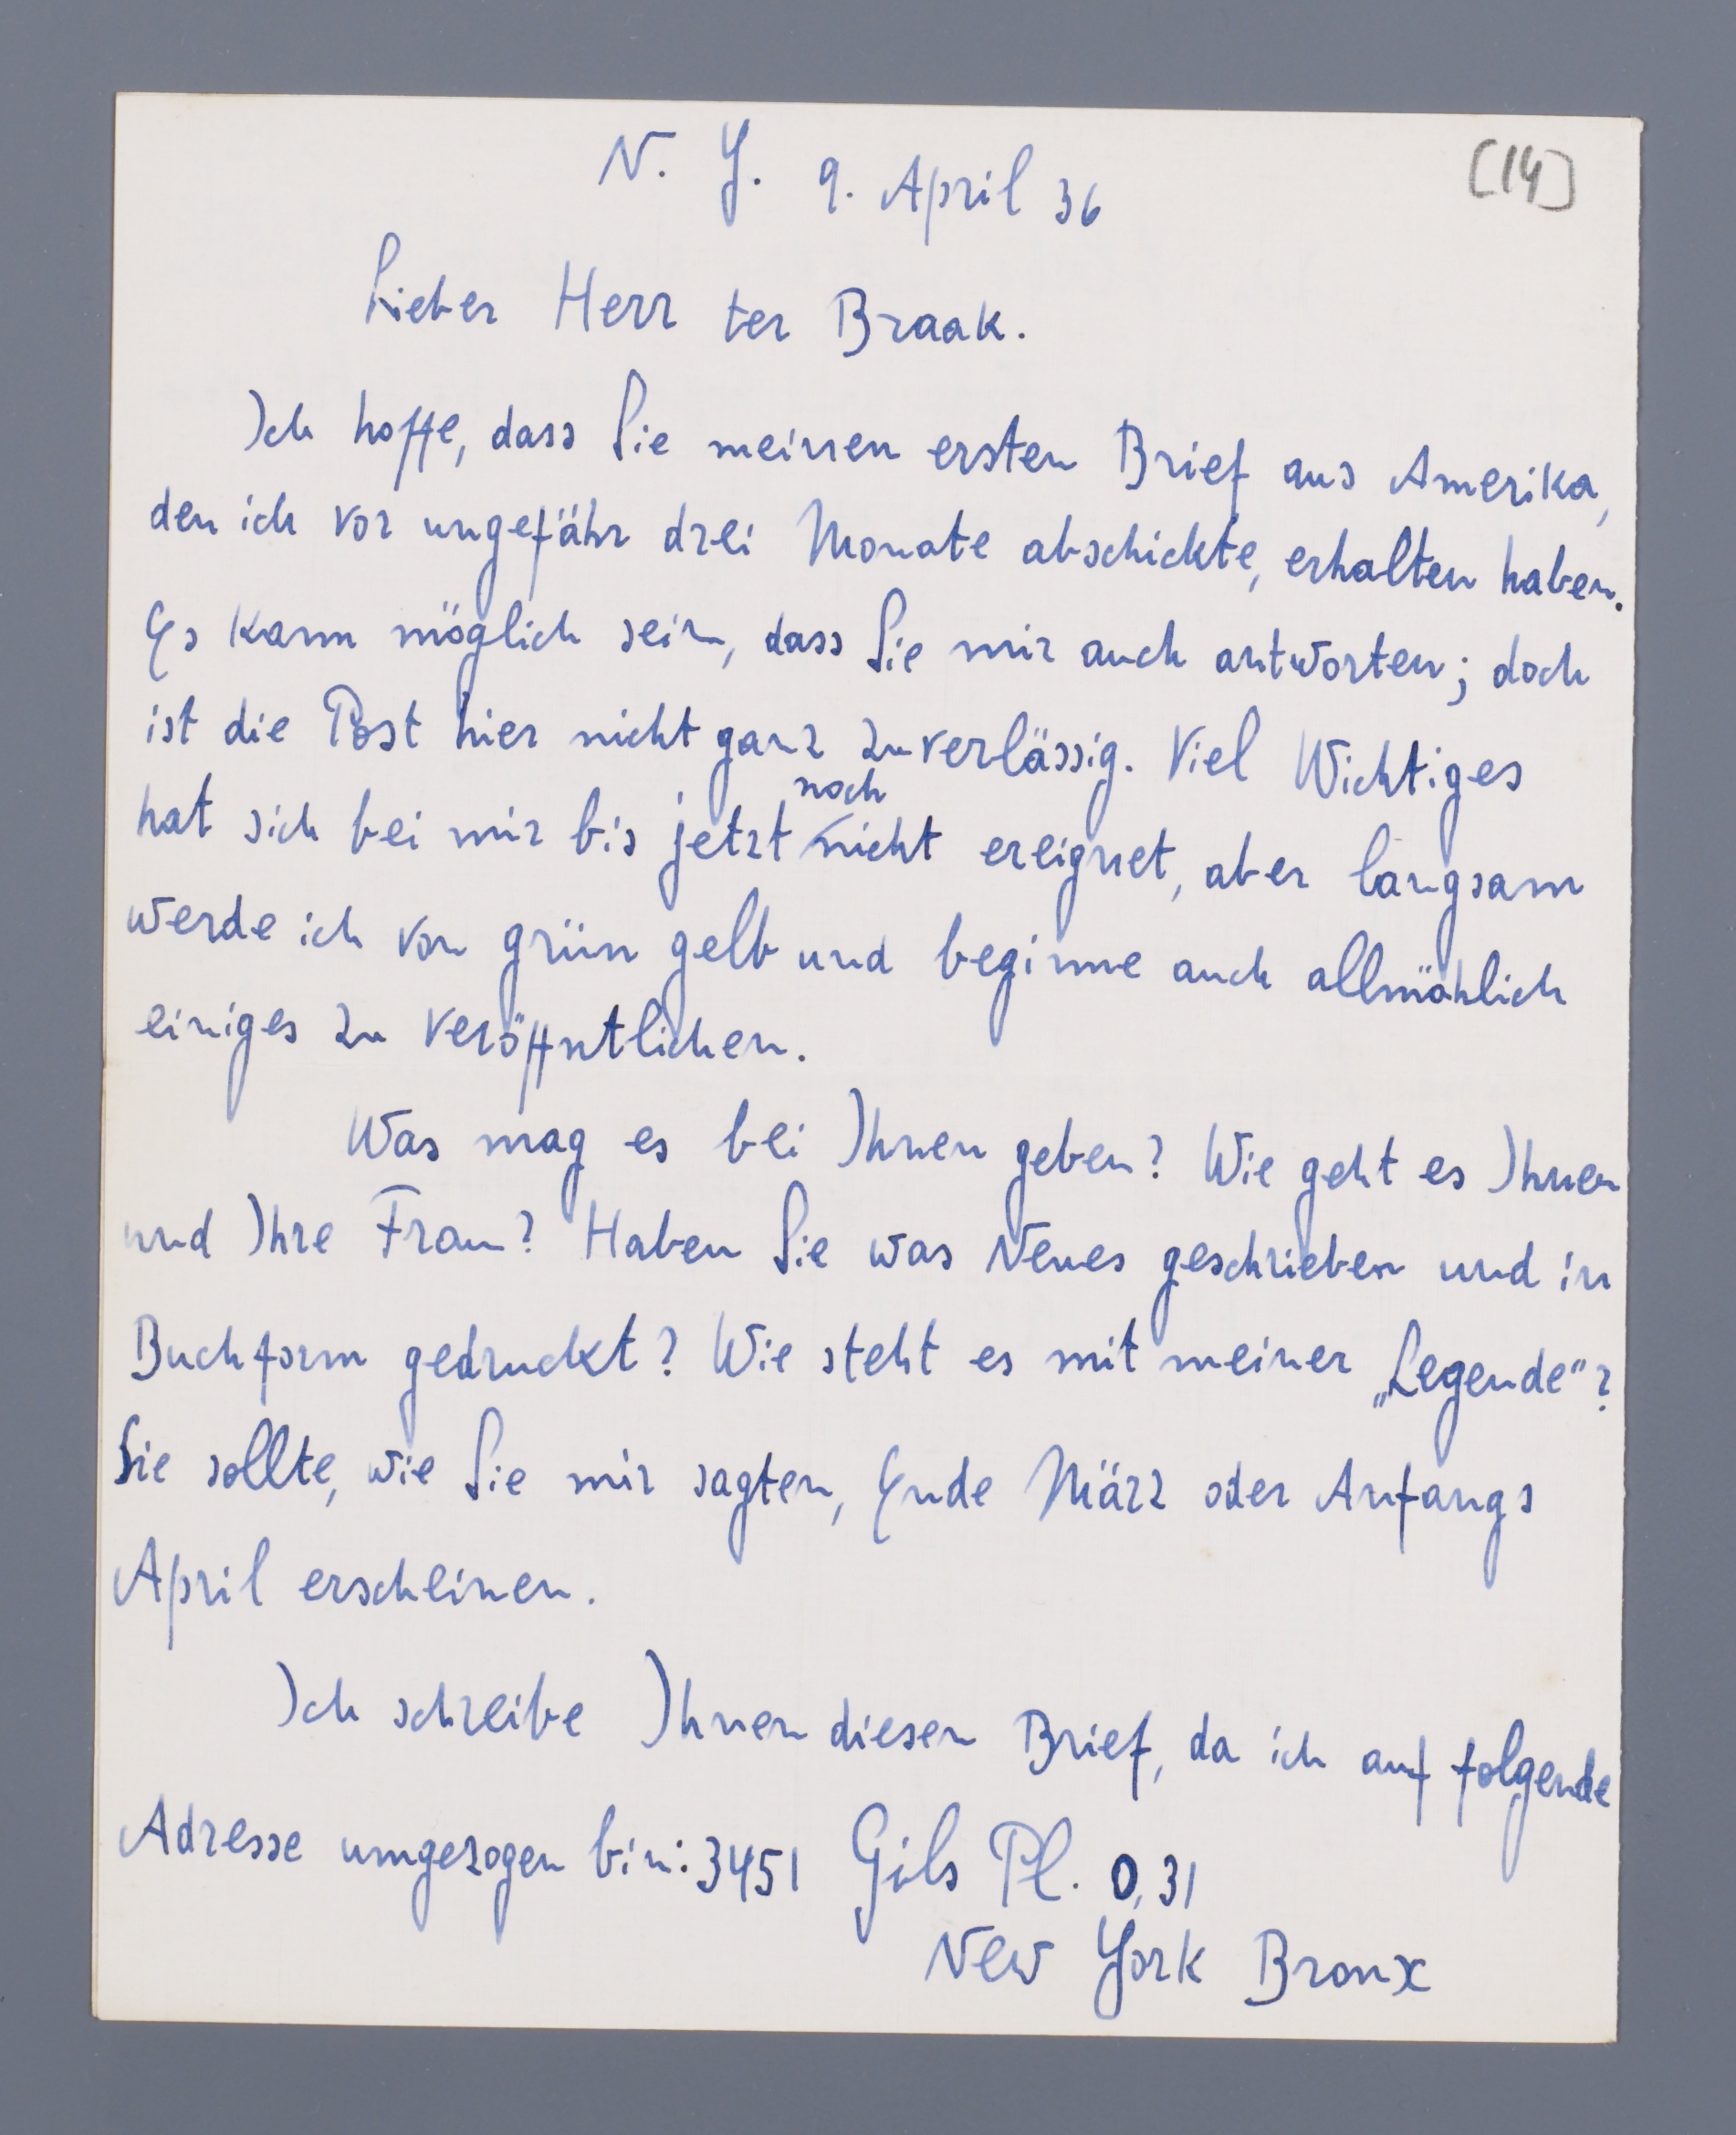 [14]
N. Y. 9. April 36
Lieber Herr ter Braak.
Ich hoffe, dass Sie meinen ersten Brief aus Amerika,
den ich vor ungefähr drei Monate abschickte, erhalten haben.
Es kann möglich sein, dass Sie mir auch antworten; doch
ist die Post hier nicht ganz zuverlässig. Viel Wichtiges
noch
hat sich bei mir bis jetzt nicht ereignet, aber langsam
werde ich von grün gelb und beginne auch allmählich
einiges zu veröffntlichen.
Was mag es bei Ihnen geben? Wie geht es Ihnen
und Ihre Frau? Haben Sie was Neues geschrieben und in
Buchform gedruckt? Wie steht es mit meiner „Legende"?
Sie sollte, wie Sie mir sagten, Ende März oder Anfangs
April erscheinen.
Ich schreibe Ihnen diesen Brief, da ich auf folgende
Adresse umgezogen bin: 3451 Gils Pl. 0,31
New York Bronx